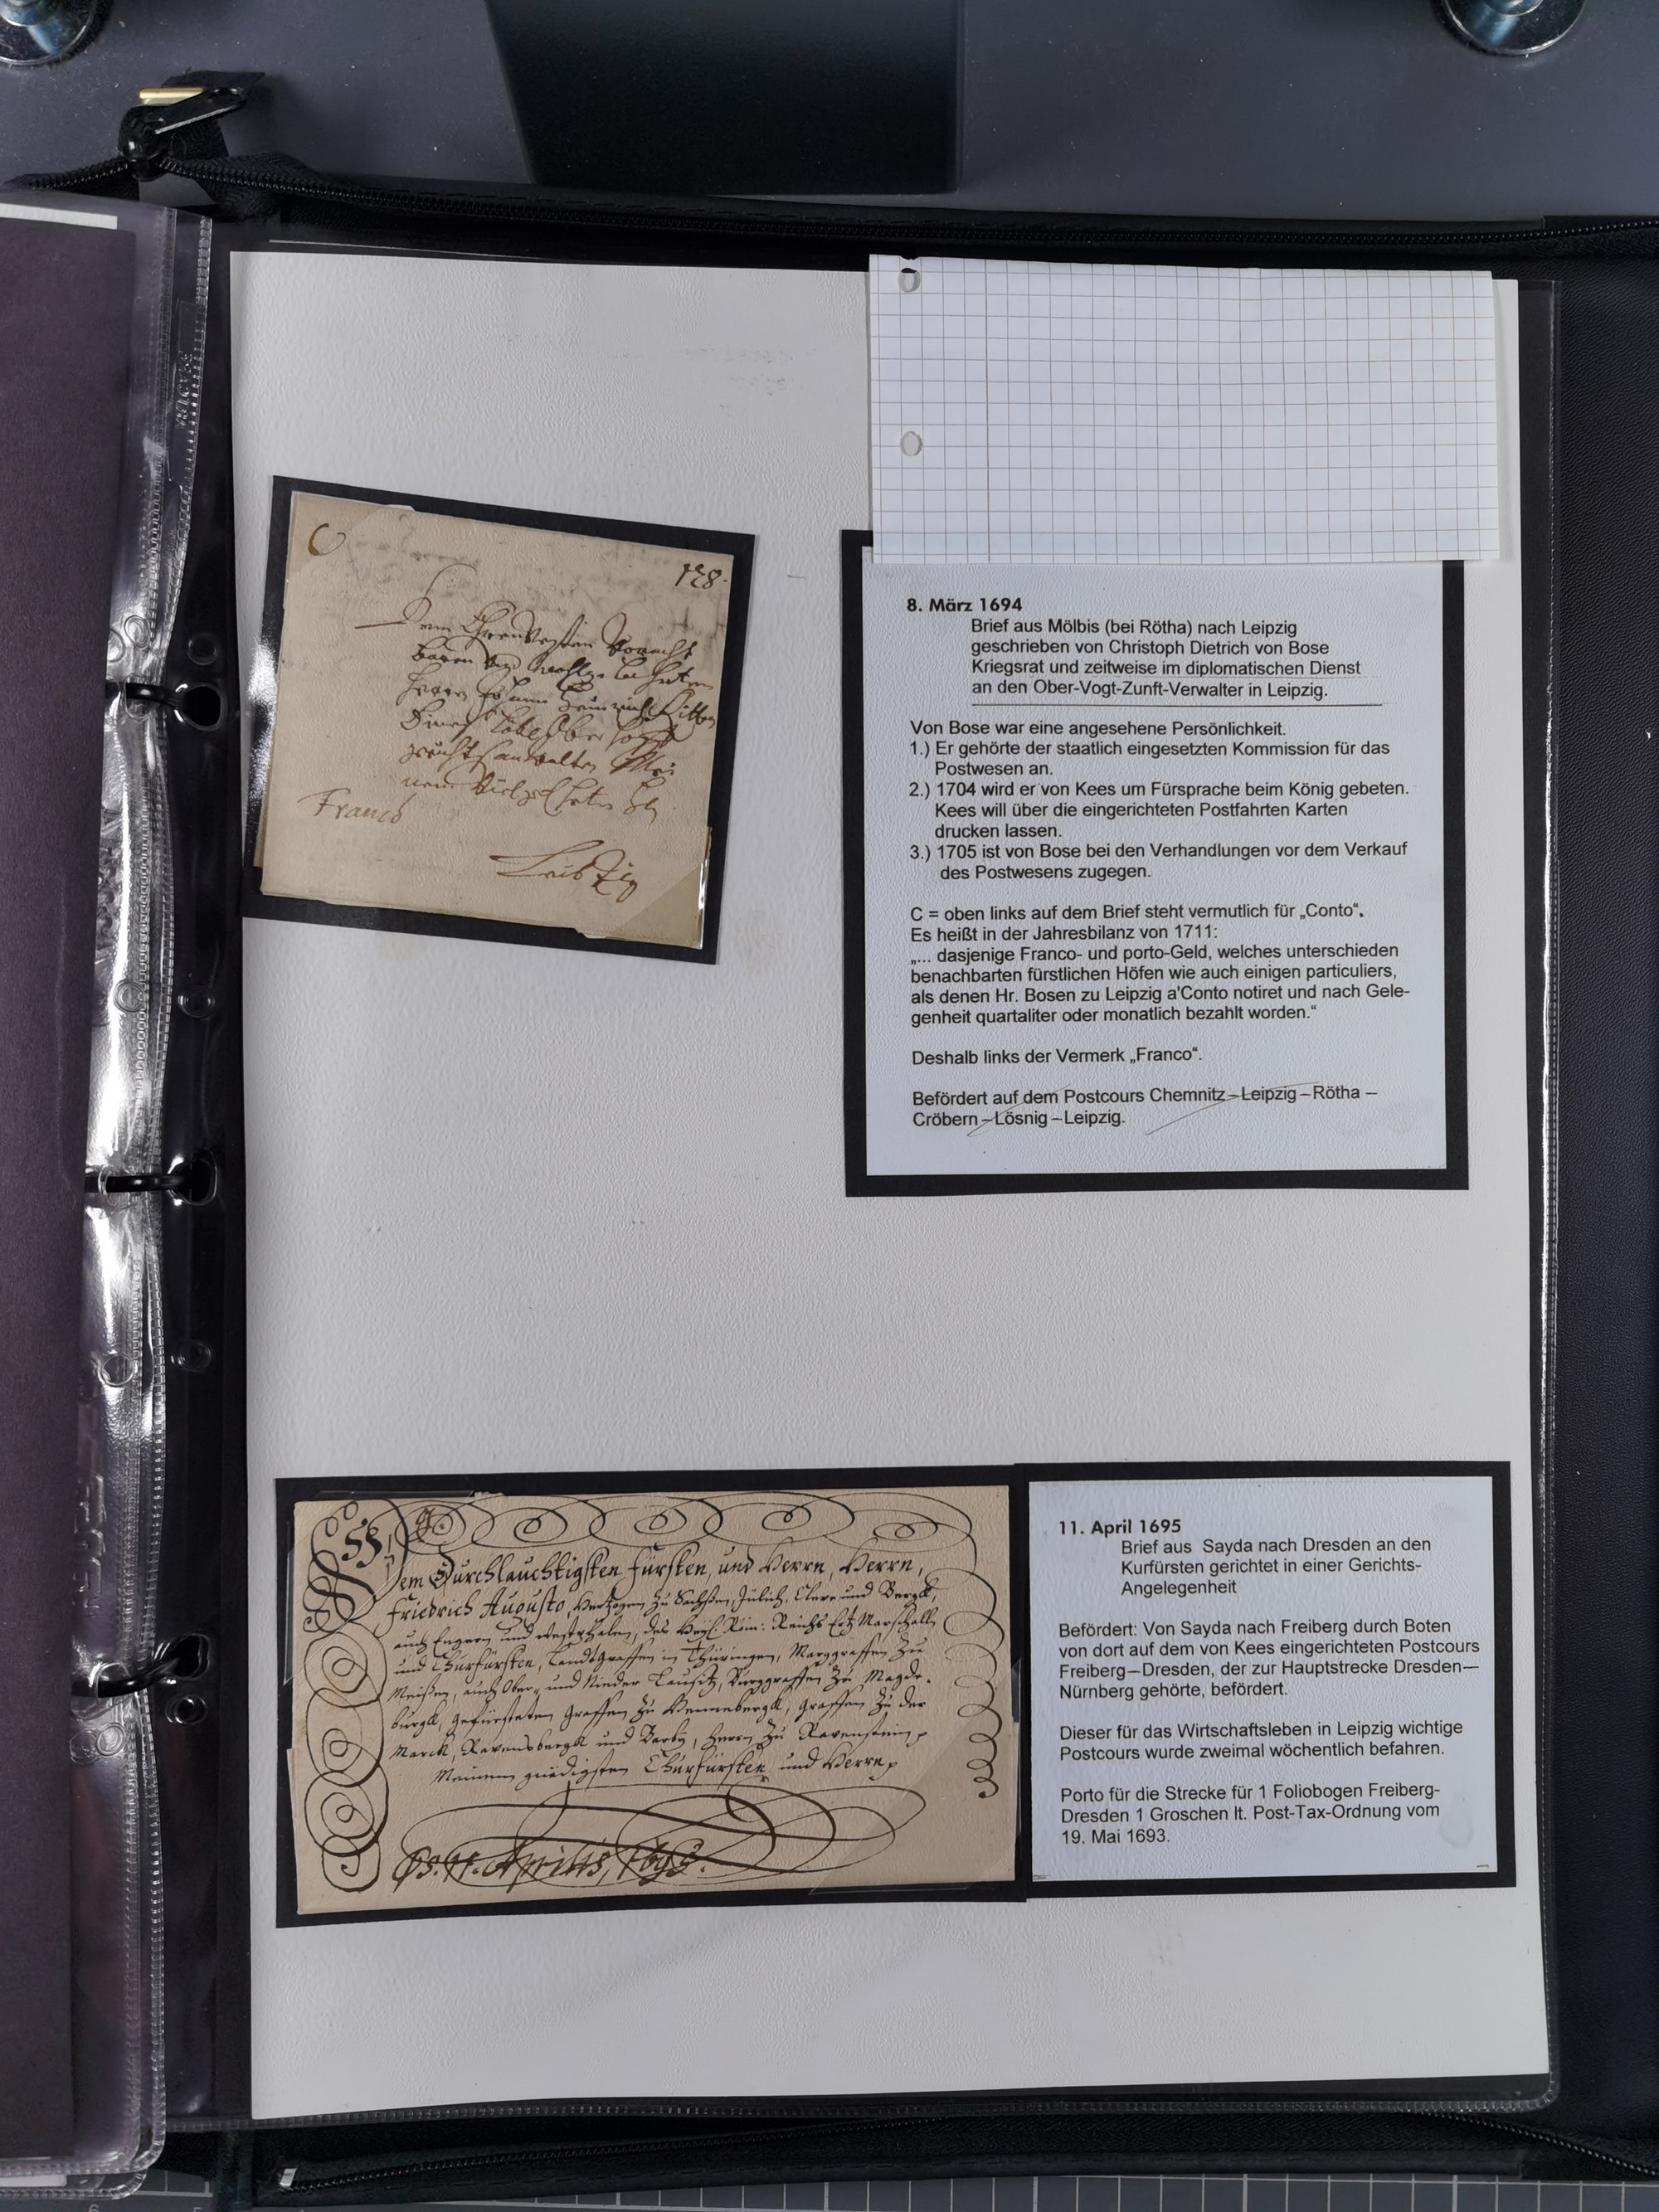 C
128.
Franco
Leibzig
8. März 1694
Brief aus Mölbis (bei Rötha) nach Leipzig
geschrieben von Christoph Dietrich von Bose
Kriegsrat und zeitweise im diplomatischen Dienst
an den Ober-Vogt-Zunft-Verwalter in Leipzig.
Von Bose war eine angesehene Persönlichkeit.
1.) Er gehörte der staatlich eingesetzten Kommission für das
Postwesen an.
2.) 1704 wird er von Kees um Fürsprache beim König gebeten.
Kees will über die eingerichteten Postfahrten Karten
drucken lassen.
3.) 1705 ist von Bose bei den Verhandlungen vor dem Verkauf
des Postwesens zugegen.
C = oben links auf dem Brief steht vermutlich für „Conto“.
Es heißt in der Jahresbilanz von 1711:
„... dasjenige Franco- und porto-Geld, welches unterschieden
benachbarten fürstlichen Höfen wie auch einigen particuliers,
als denen Hr. Bosen zu Leipzig a'Conto notiret und nach Gele-
genheit quartaliter oder monatlich bezahlt worden.“
Deshalb links der Vermerk „Franco“.
Befördert auf dem Postcours Chemnitz – Leipzig – Rötha –
Cröbern – Lösnig – Leipzig.
Dem Durchlauchtigsten Fürsten, und Herrn, Herrn,
Friedrich Augusto, Hertzogen zu Sachßen, Jülich, Cleve und Bergk,
auch Engern und Westphalen, des Heyl. Röm: Reichs Ertz Marschalln
und Churfürsten, Landtgraffen in Thüringen, Marggraffen Zu
Meißen, auch Ober- und Nieder Lausitz, Burggraffen Zu Magde-
burgk, Gefürsteten Graffen Zu Hennebergk, Graffen Zu der
Marck, Ravensbergk und Barby, Herrn Zu Ravenstein
Meinem gnädigsten Churfürsten und Herrn
11. Aprilis, 1695.
11. April 1695
Brief aus Sayda nach Dresden an den
Kurfürsten gerichtet in einer Gerichts-
Angelegenheit
Befördert: Von Sayda nach Freiberg durch Boten
von dort auf dem von Kees eingerichteten Postcours
Freiberg—Dresden, der zur Hauptstrecke Dresden—
Nürnberg gehörte, befördert.
Dieser für das Wirtschaftsleben in Leipzig wichtige
Postcours wurde zweimal wöchentlich befahren.
Porto für die Strecke für 1 Foliobogen Freiberg-
Dresden 1 Groschen lt. Post-Tax-Ordnung vom
19. Mai 1693.